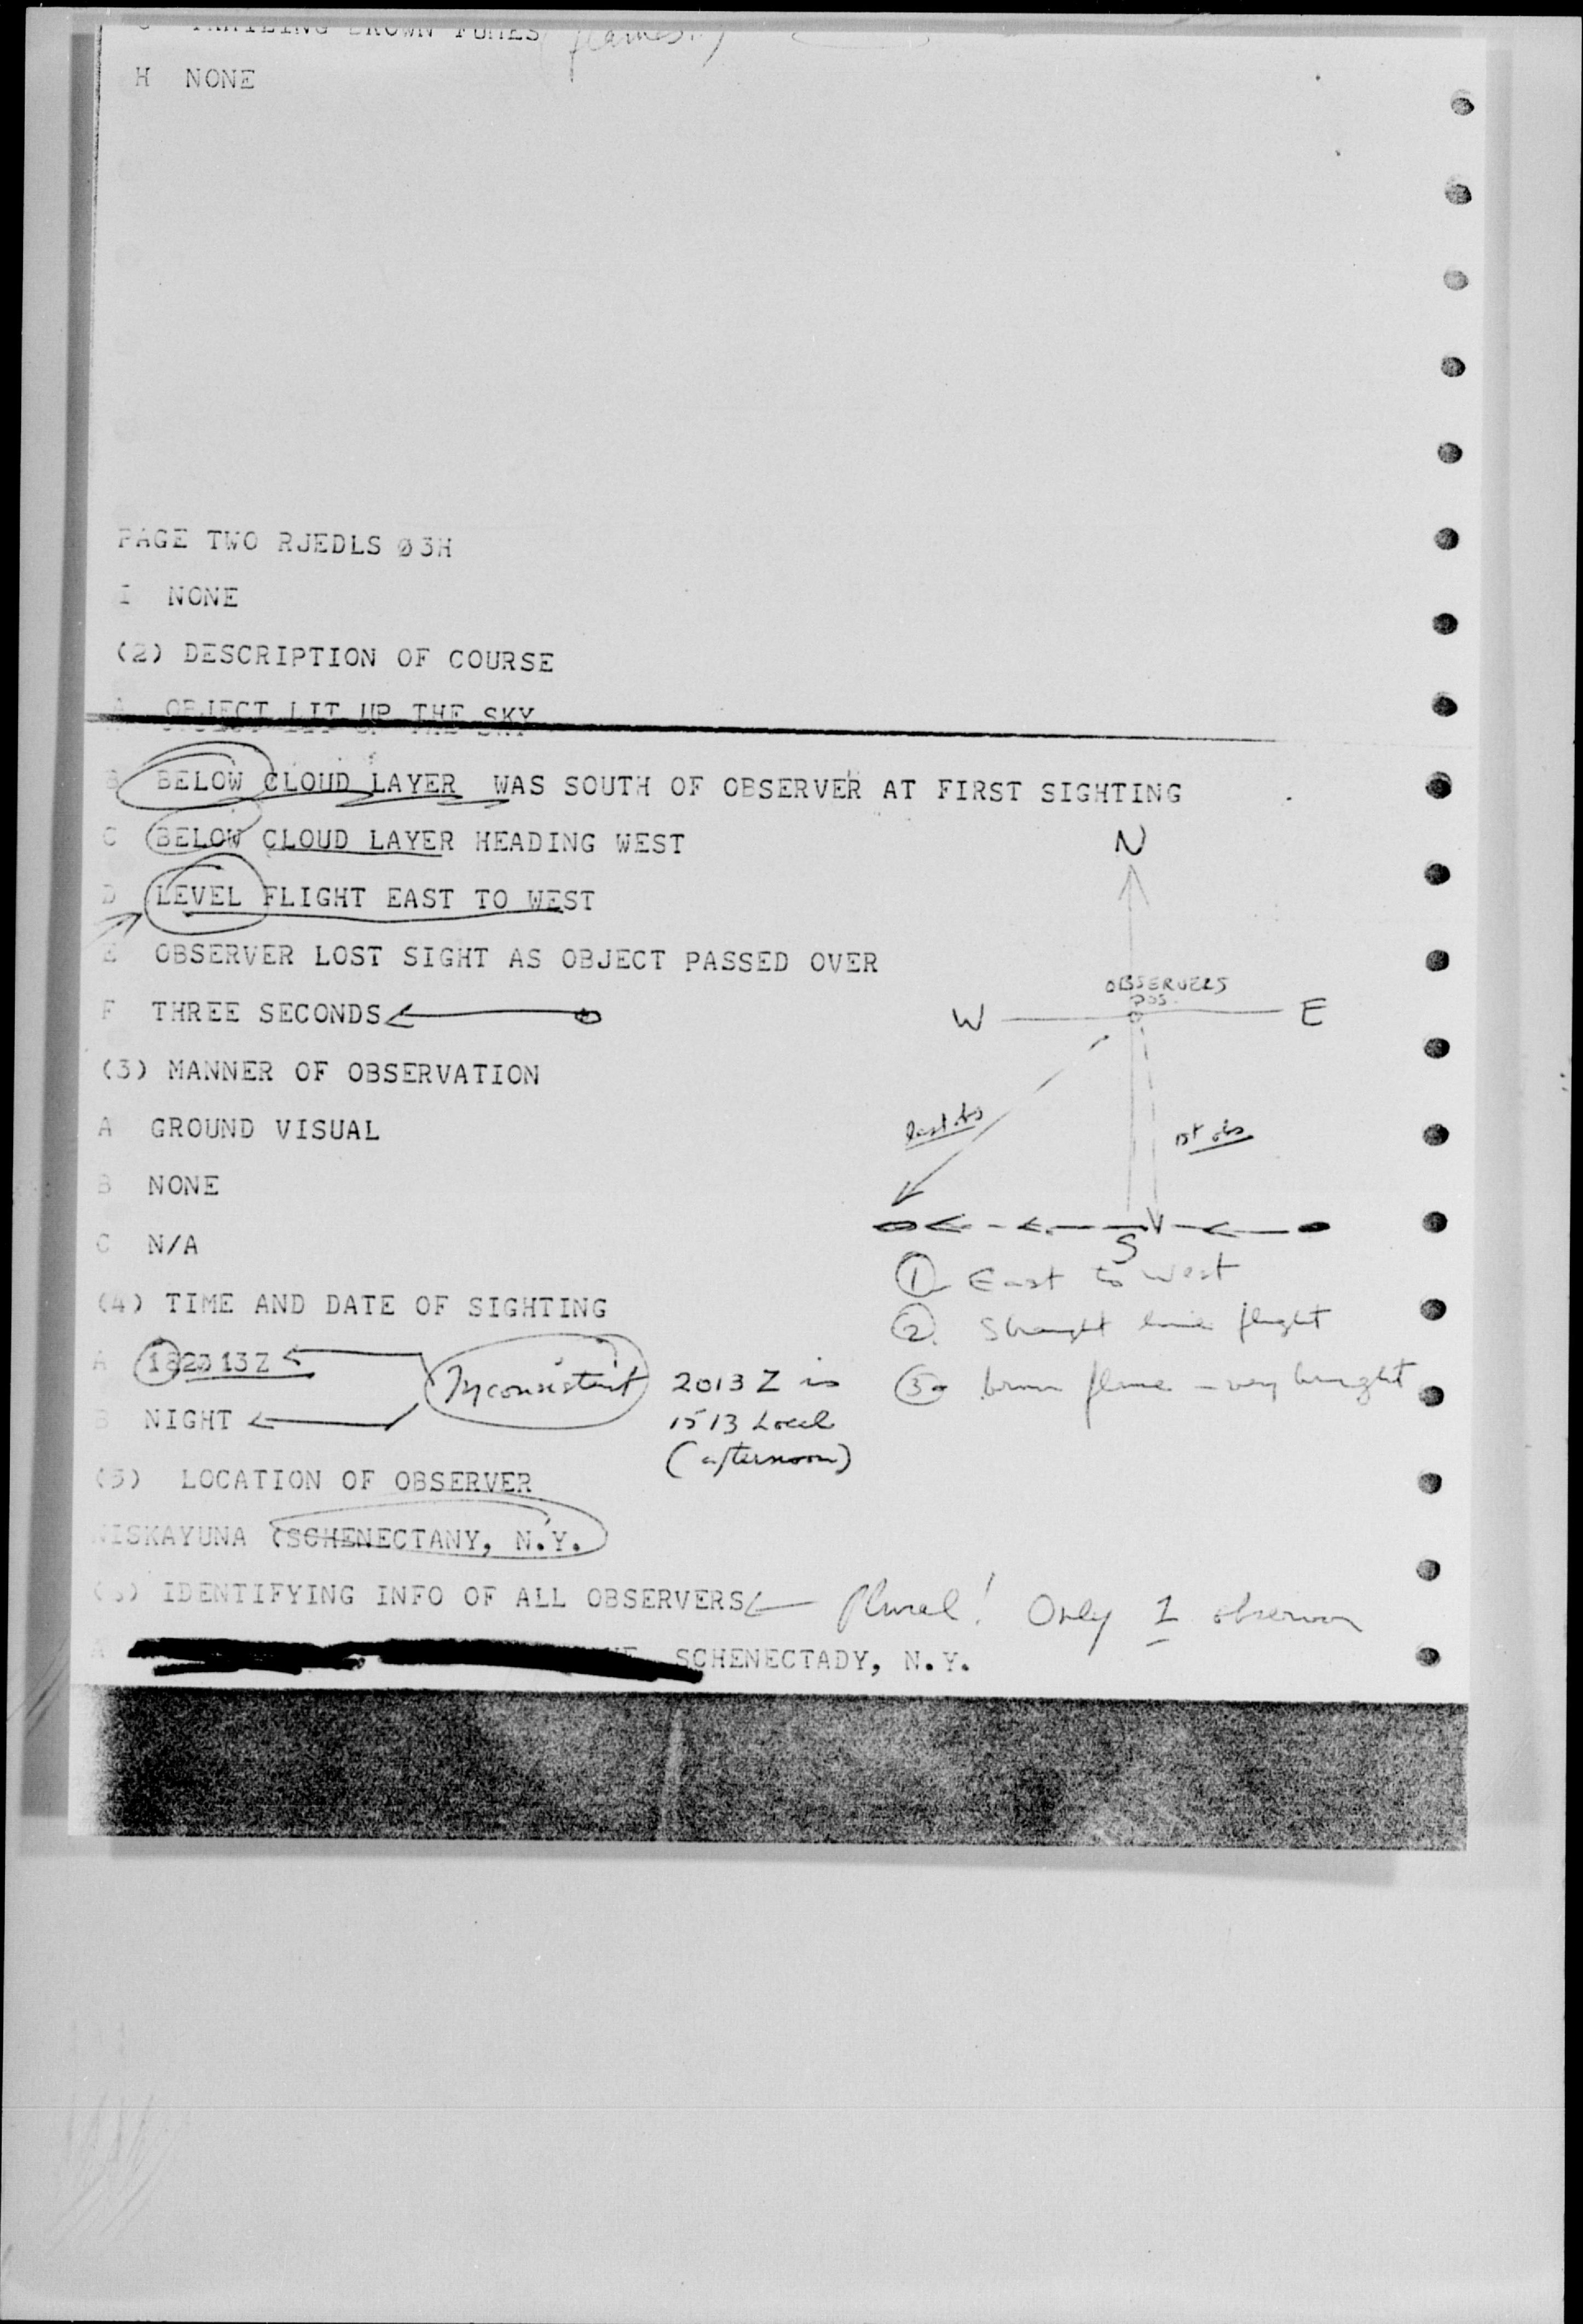 TRAILING BROWN FUMES (flames.)
H NONE
PAGE TWO RJEDLS Ø3H
I NONE
(2) DESCRIPTION OF COURSE
A OBJECT LIT UP THE SKY
B BELOW CLOUD LAYER WAS SOUTH OF OBSERVER AT FIRST SIGHTING
C BELOW CLOUD LAYER HEADING WEST
N
D LEVEL FLIGHT EAST TO WEST
E OBSERVER LOST SIGHT AS OBJECT PASSED OVER
OBSERVERS
POS.
F THREE SECONDS
W E
(3) MANNER OF OBSERVATION
A GROUND VISUAL
last obs
1st obs
B NONE
C N/A
S
① East to West
(4) TIME AND DATE OF SIGHTING
② Straight line flight
A 182013Z
Inconsistent
2013 Z is
1513 Local
(afternoon)
③ brown flame - very bright
B NIGHT
(5) LOCATION OF OBSERVER
NISKAYUNA (SCHENECTANY, N.Y.
(6) IDENTIFYING INFO OF ALL OBSERVERS Plural! Only 1 observer
A SCHENECTADY, N.Y.